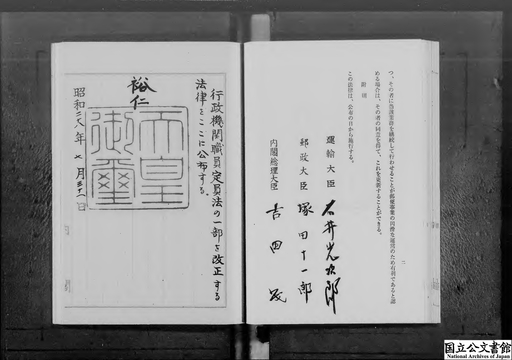 つ、その者に当該業務を継続して行わせることが郵便事業の円滑な運営のため有利であると認
める場合は、その者の同意を得て、これを更新することができる。
附則
この法律は、公布の日から施行する。
二
運輸大臣 石井光次郎
郵政大臣 塚田十一郎
内閣総理大臣 吉田茂
行政機関職員定員法の一部を改正する
法律をここに公布する。
裕仁
天皇
御璽
昭和二十八年七月三十一日
国立公文書館
National Archives of Japan